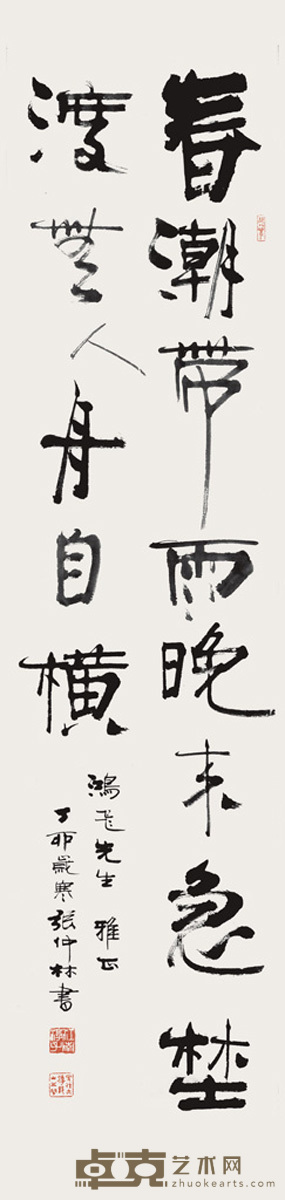 春潮帶雨晚來急埜
渡無人舟自橫
鴻先生 雅正
丁卯歲寒張仲林書
卓克艺术网
zhuokearts.com